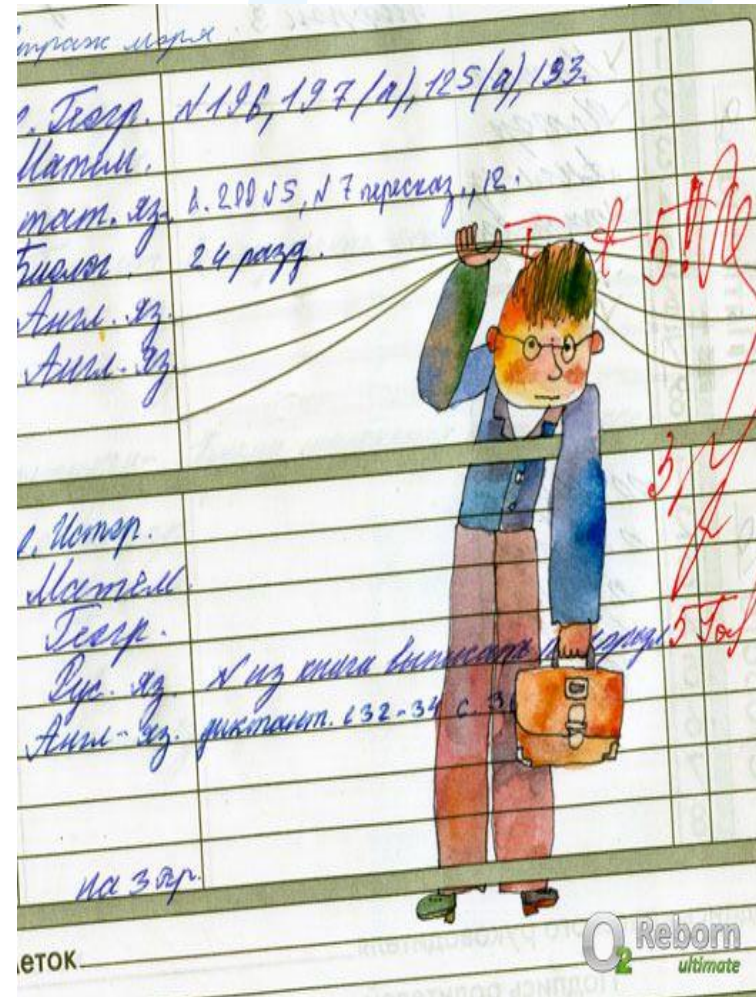 страж моря
с. Геогр. N196, 197(а), 125(а), 193.
Матем.
тат. яз. с. 200 N5, N7 пересказ., 12.
Биолог. 24 разд.
Англ. яз. 5
Англ-яз
3
с. Истор.
Матем.
Геогр.
Рус. яз. N из книги выписать 5
Англ-яз. диктант. с32-34 с. 3
на 3 яр.
еток
O2 Reborn
ultimate